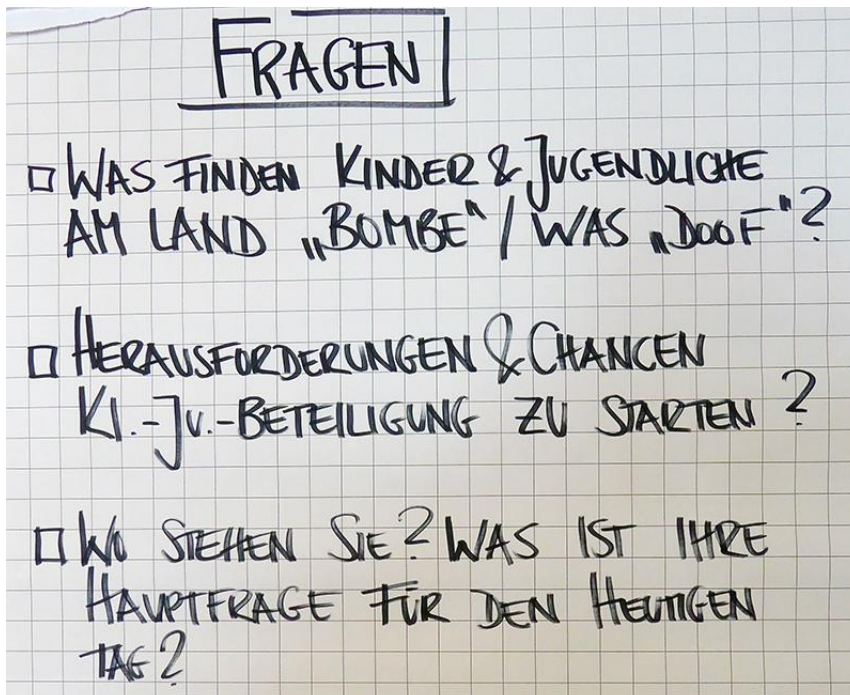 FRAGEN
□ WAS FINDEN KINDER & JUGENDLICHE
AM LAND „BOMBE“ / WAS „DOOF“?
□ HERAUSFORDERUNGEN & CHANCEN
KI.-JU.-BETEILIGUNG ZU STARTEN?
□ WO STEHEN SIE? WAS IST IHRE
HAUPTFRAGE FÜR DEN HEUTIGEN
TAG?